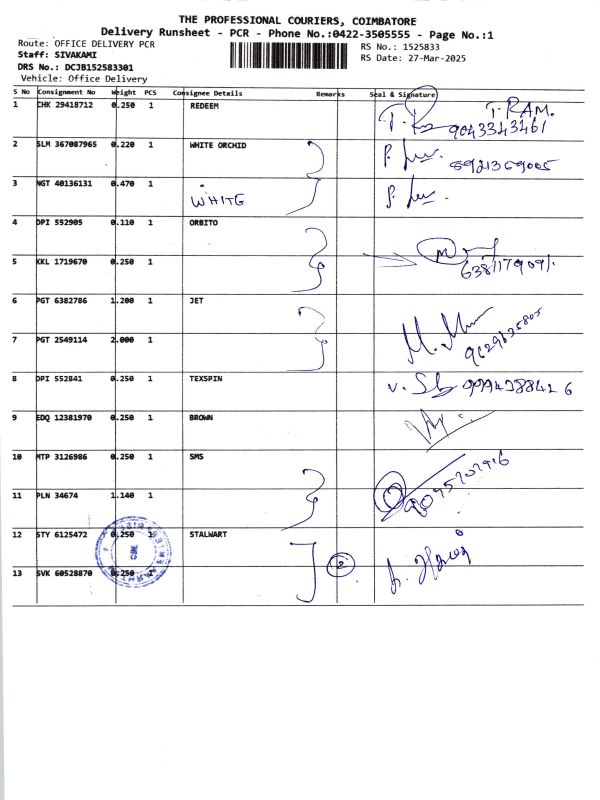 THE PROFESSIONAL COURIERS, COIMBATORE
Delivery Runsheet - PCR - Phone No.:0422-3505555 - Page No.:1
Route: OFFICE DELIVERY PCR
RS No.: 1525833
Staff: SIVAKAMI
RS Date: 27-Mar-2025
DRS No.: DCJB152583301
Vehicle: Office Delivery
S No Consignment No Weight PCS Consignee Details Remarks Seal & Signature
1 CHK 29418712 0.250 1 REDEEM T. RAM.
9043343461
2 SLM 367087965 0.220 1 WHITE ORCHID
3 NGT 40136131 0.470 1 WHITE
4 DPI 552905 0.110 1 ORBITO
5 KKL 1719670 0.250 1
6 PGT 6382786 1.200 1 JET
7 PGT 2549114 2.000 1
8 DPI 552841 0.250 1 TEXSPIN 9994388426
9 EDQ 12381970 0.250 1 BROWN
10 MTP 3126986 0.250 1 SMS
11 PLN 34674 1.140 1
12 STY 6125472 0.250 1 STALWART
2
13 SVK 60528870 0.250 1